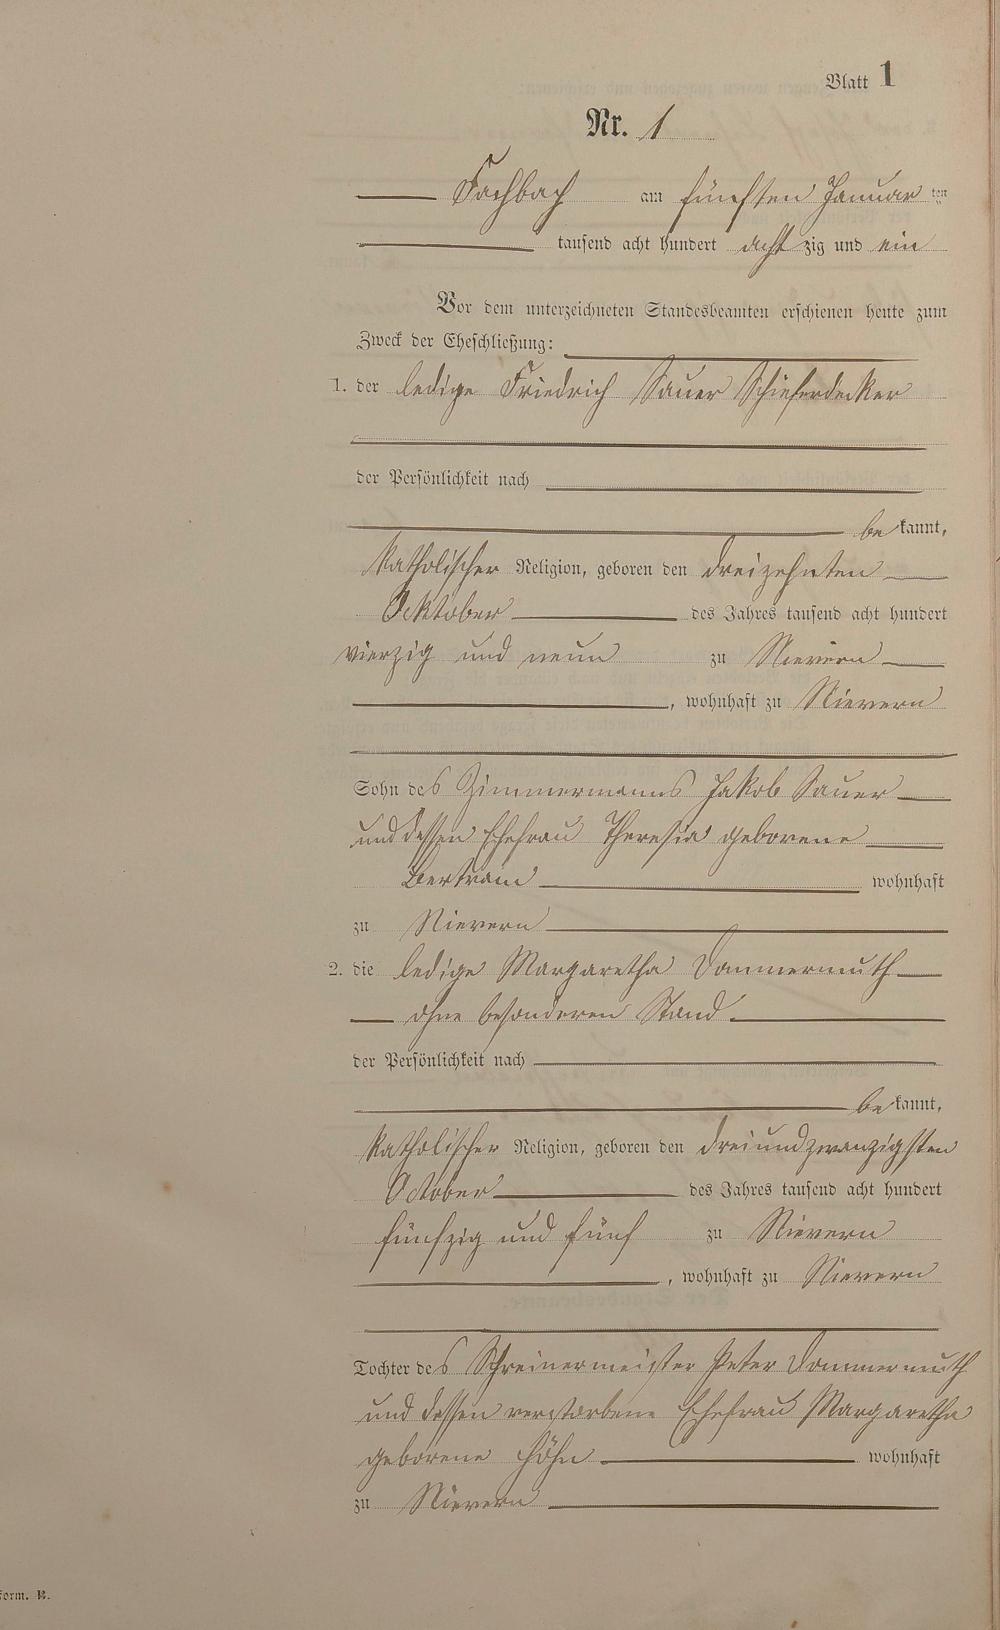 Blatt 1
Nr. 1
Fachbach am fünften Januar ten
tausend acht hundert acht zig und ein
Vor dem unterzeichneten Standesbeamten erschienen heute zum
Zweck der Eheschließung:
1. der ledige Friedrich Sauer Schieferdecker
der Persönlichkeit nach
be kannt,
katholischer Religion, geboren den dreizehnten
Oktober des Jahres tausend acht hundert
vierzig und neun zu Nievern
, wohnhaft zu Nievern
Sohn des Zimmermanns Jakob Sauer
und dessen Ehefrau Theresia geborene
Bertram wohnhaft
zu Nievern
2. die ledige Margaretha Dommermuth
ohne besonderen Stand
der Persönlichkeit nach
be kannt,
katholischer Religion, geboren den dreiundzwanzigsten
October des Jahres tausend acht hundert
fünfzig und fünf zu Nievern
, wohnhaft zu Nievern
Tochter des Schreinermeister Peter Dommermuth
und dessen verstorbene Ehefrau Margaretha
geborene Höhn wohnhaft
zu Nievern
form. B.